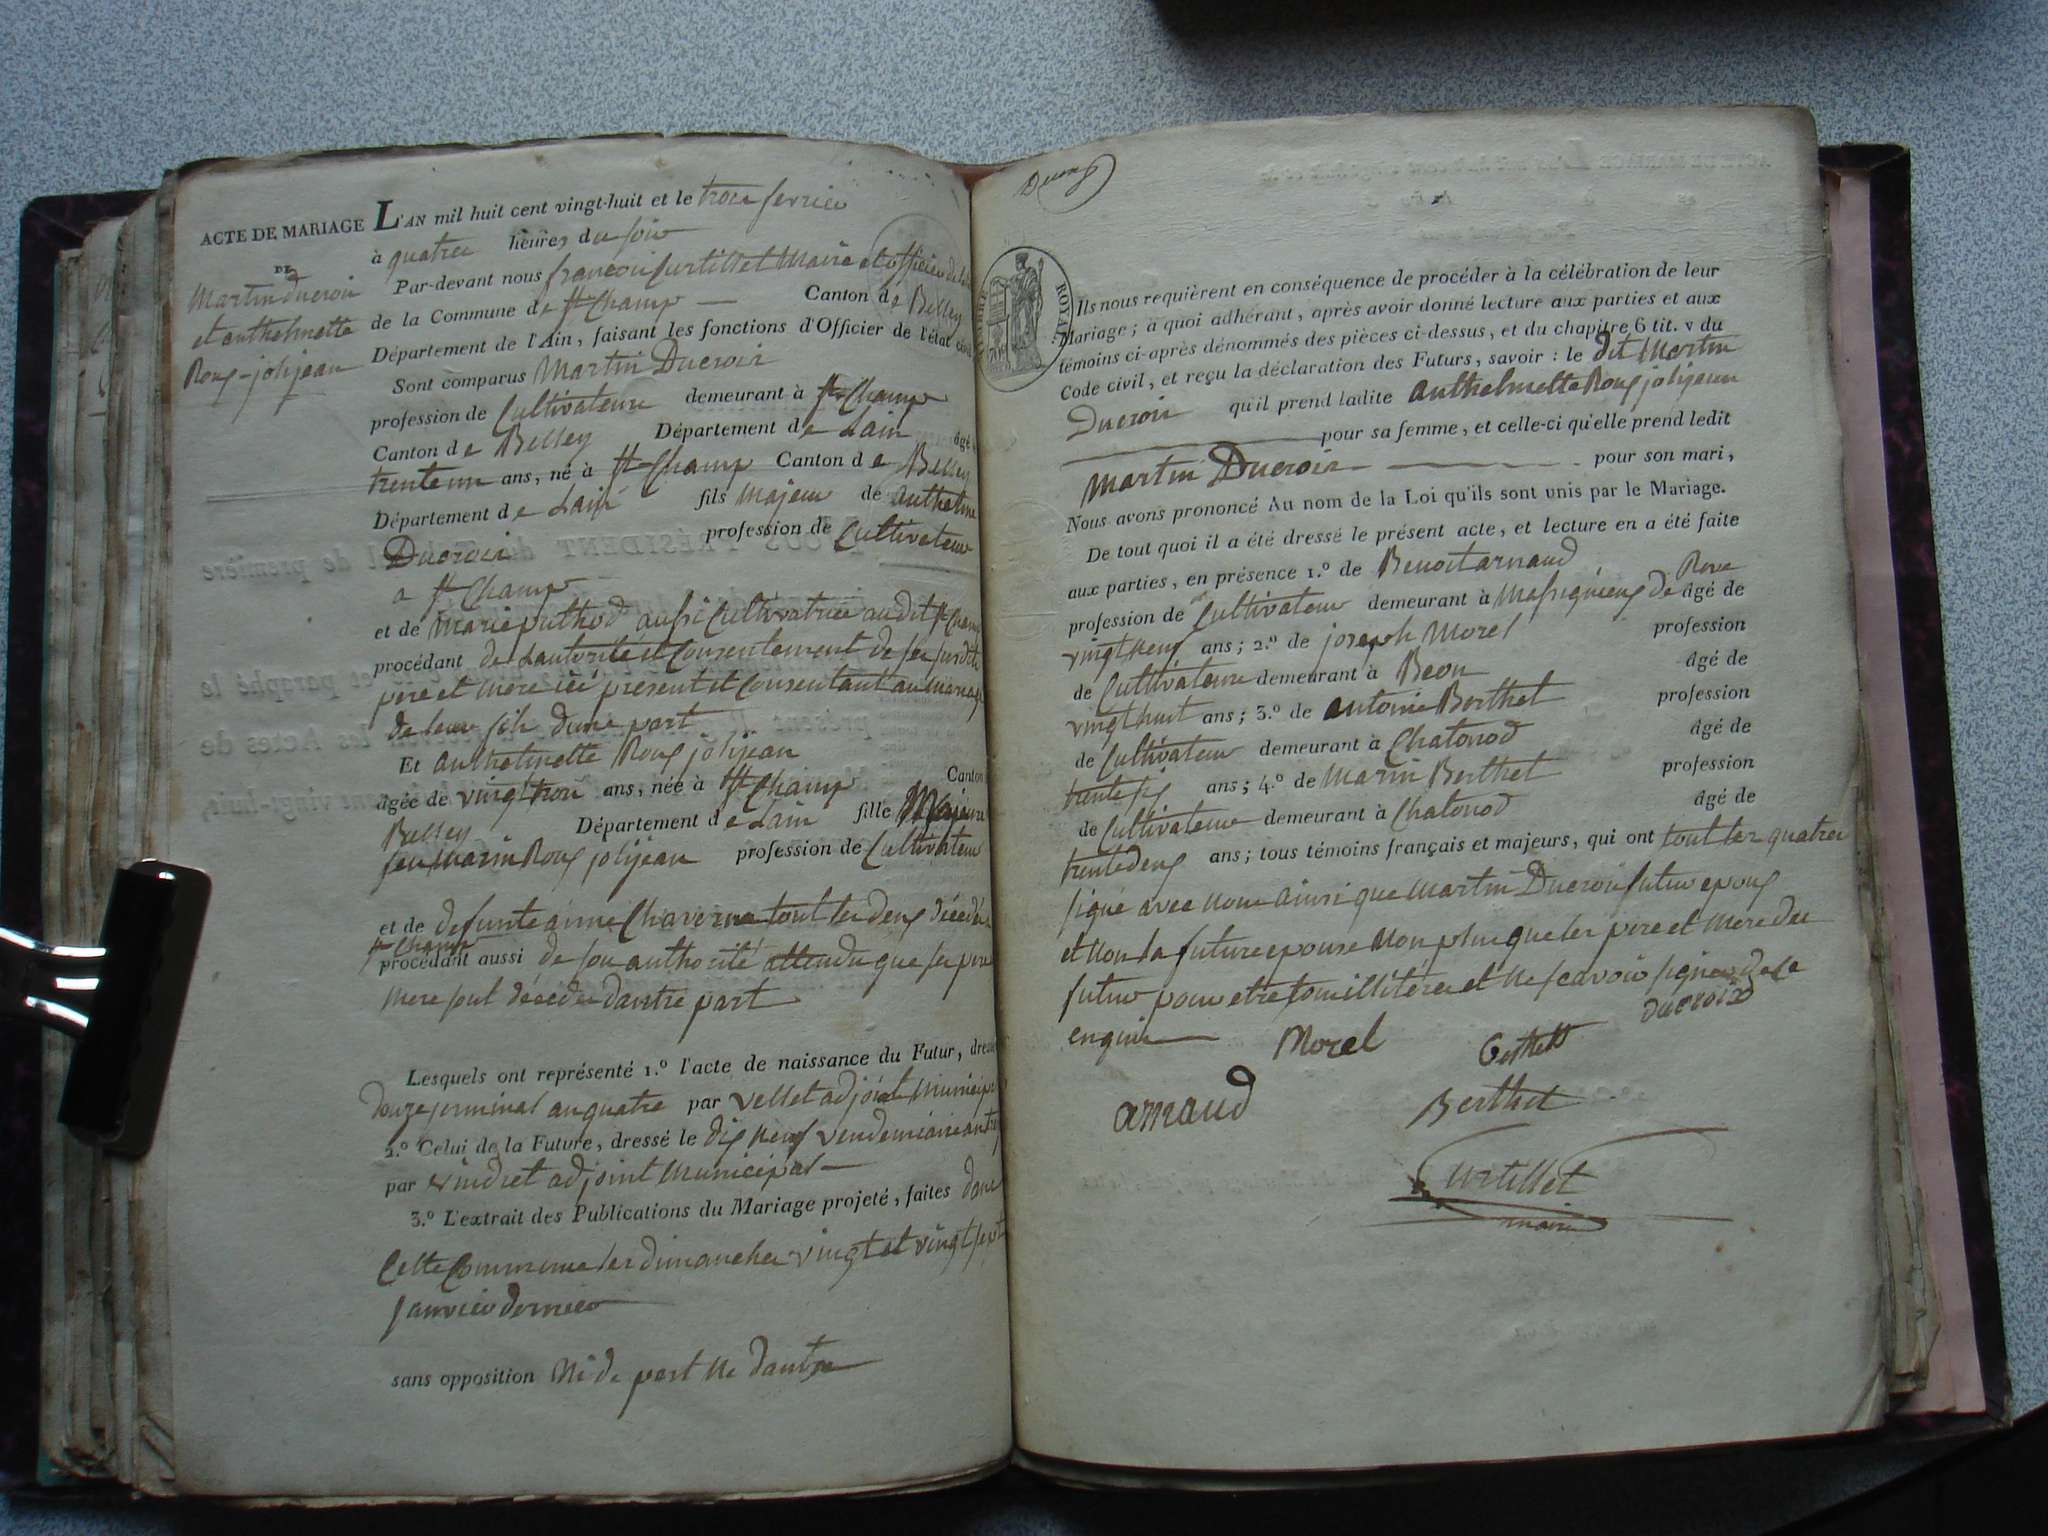 ACTE DE MARIAGE L'AN mil huit cent vingt-huit et le trois fevrier
à quatre heures du soir
DE
Martin ducroix
et anthelmette
Roux-jolijean
Par-devant nous francois Curtillet Maire et officier de
de la Commune de St Champ — Canton de Belley
Département de l'Ain, faisant les fonctions d'Officier de l'état civil
Sont comparus Martin Ducroix
profession de Cultivateur demeurant à St Champ
Canton de Belley Département de Lain âgé
trente un ans, né à St Champ Canton de Belley
Département de Lain fils Majeur de anthelme
Ducroix profession de Cultivateur
a St Champ
et de Marie puthod aussi Cultivatrice audit St Champ
procédant de Lautorité et Consentement de ses susdits
pere et mere ici present et Consentant au mariage
de leur fils dune part
Et anthelmette Roux jolijean
âgée de vingt trois ans, née à St Champ Canton
Belley Département de Lain fille Majeure
feu Marin Roux jolijean profession de Cultivateur
et de defunte anne Chaverne tout les deux décédés
St Champ
procédant aussi de son authorité attendu que ses pere
mere sont décédés dautre part
Lesquels ont représenté 1.º l'acte de naissance du Futur, dressé
douze germinal an quatre par vellet adjoint Municipal
2.º Celui de la Future, dressé le dix neuf vendemiaire an
par vindret adjoint municipal —
3.º L'extrait des Publications du Mariage projeté, faites dans
Cette Commune les dimanches vingt et vingt sept
janvier dernier
sans opposition Ni de part Ni dautre
Ducroix
TIMBRE ROYAL
Ils nous requièrent en conséquence de procéder à la célébration de leur
Mariage ; à quoi adhérant, après avoir donné lecture aux parties et aux
témoins ci-après dénommés des pièces ci-dessus, et du chapitre 6 tit. v du
Code civil, et reçu la déclaration des Futurs, savoir : le dit Martin
Ducroix qu'il prend ladite anthelmette Roux jolijean
pour sa femme, et celle-ci qu'elle prend ledit
Martin Ducroix — pour son mari,
Nous avons prononcé Au nom de la Loi qu'ils sont unis par le Mariage.
De tout quoi il a été dressé le présent acte, et lecture en a été faite
aux parties, en présence 1.º de Benoit arnaud
profession de Cultivateur demeurant à Massignieux de Rive âgé de
vingt neuf ans ; 2.º de joseph Morel profession
de Cultivateur demeurant à Beon âgé de
vingt huit ans ; 3.º de antoine Berthet profession
de Cultivateur demeurant à Chatonod âgé de
trente six ans ; 4.º de Marin Berthet profession
de Cultivateur demeurant à Chatonod âgé de
trente deux ans ; tous témoins français et majeurs, qui ont tout les quatres
signé avec nous ainsi que Martin Ducroix futur epoux
et non la future epouse Non plus que les pere et mere du
futur pour etre tous illitérés et Ne scavoir signer de ce
enquis — Morel Berthet ducroix
arnaud Berthet
Curtillet
maire